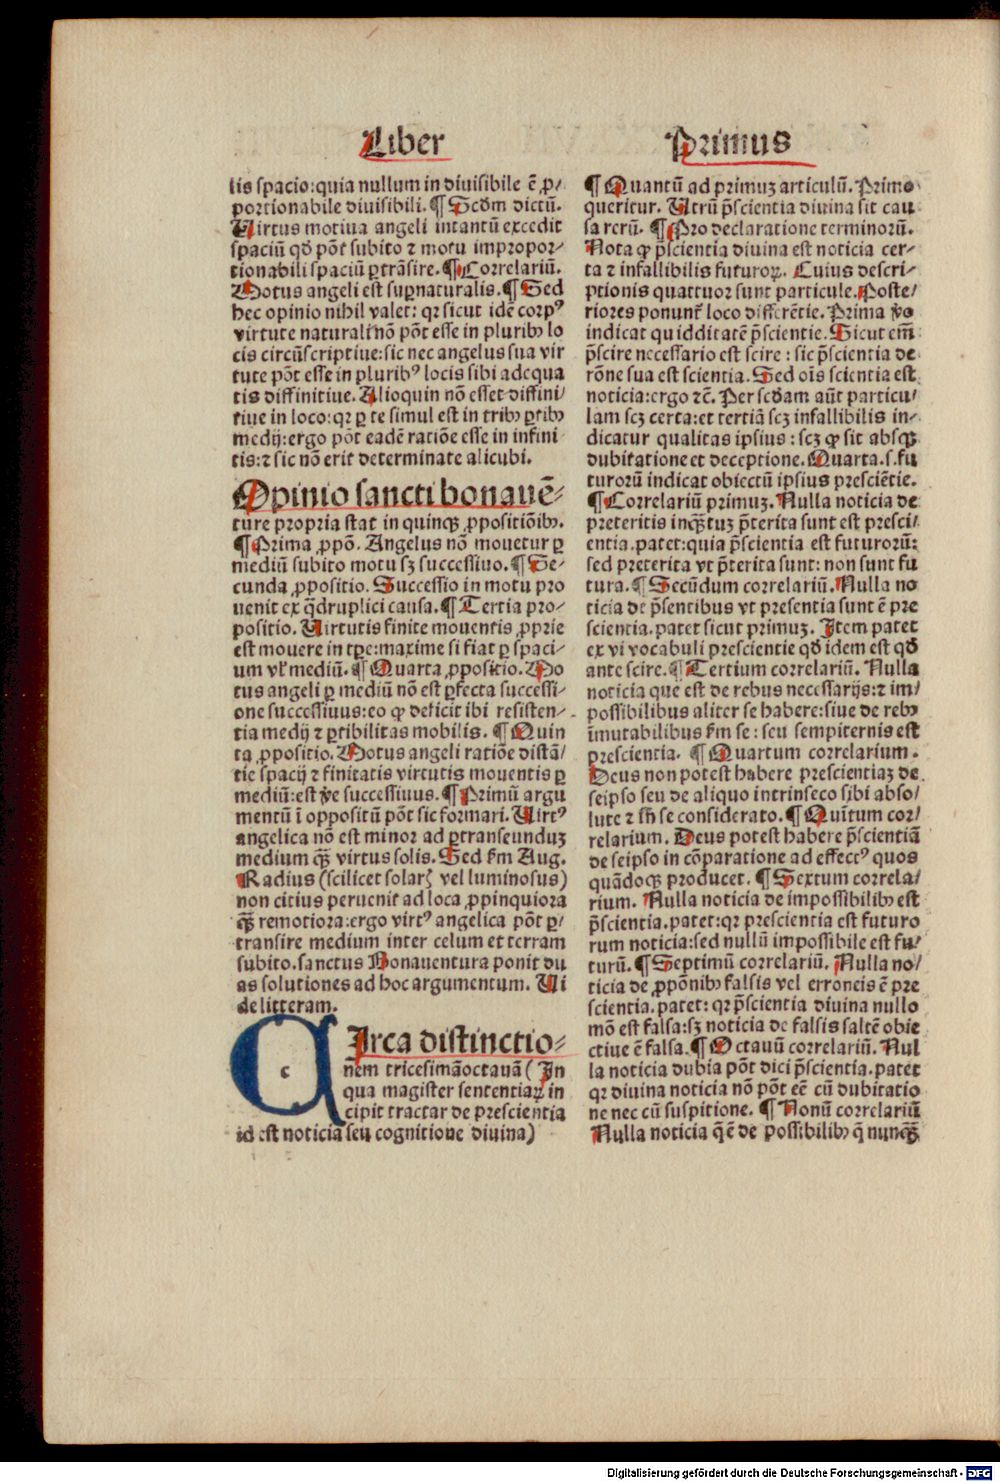 Liber
Primus
lis spacio:quia nullum in diuisibile ē ꝓ/
portionabile diuisibili.¶ Scḋm dictū.
Uirtus motiua angeli intantū excedit
spaciū qḋ pōt subito ⁊ motu impropor⸗
tionabili spaciū ꝑtrāsire.¶ Correlariū.
Motus angeli est suꝑnaturalis.¶ Sed
hec opinio nihil valet: qꝛ sicut idē corpꝰ
virtute naturali nō pōt esse in pluribꝫ lo
cis circūscriptiue:sic nec angelus sua vir
tute pōt esse in pluribꝰ locis sibi adequa
tis diffinitiue. Alioquin nō esset diffini/
tiue in loco:qꝛ ꝑ te simul est in tribꝫ ꝑtibꝫ
medij:ergo pōt eadē ratiōe esse in infini
tis:⁊ sic nō erit determinate alicubi.
Opinio sancti bonauē⸗
ture propria stat in quinqꝫ ꝓpositiōibꝫ.
¶ Prima ꝓpō. Angelus nō mouetur ꝑ
mediū subito motu sꝫ successiuo.¶ Se⸗
cunda ꝓpositio. Successio in motu pro
uenit ex q̄druplici causa.¶ Tertia pro⸗
positio. Uirtutis finite mouentis ꝓprie
est mouere in tꝑe:maxime si fiat ꝑ spaci⸗
um vl' mediū.¶ Quarta ꝓpositio. Mo
tus angeli ꝑ mediū nō est ꝑfecta successi⸗
one successiuus:eo ꝙ deficit ibi resisten⸗
tia medij ⁊ ꝑtibilitas mobilis. ¶ Quin
ta ꝓpositio. Motus angeli ratiōe distā/
tie spacij ⁊ finitatis virtutis mouentis ꝑ
mediū:est v̄e successiuus.¶ Primū argu
mentū ī oppositū pōt sic formari. Uirtꝰ
angelica nō est minor ad ꝑtranseunduꝫ
medium qꝫ̄ virtus solis. Sed ẜm Aug.
Radius (scilicet solarꝭ vel luminosus)
non citius peruenit ad loca ꝓpinquiora
qꝫ̄ remotiora:ergo virtꝰ angelica pōt ꝑ/
transire medium inter celum et terram
subito.sanctus Bonauentura ponit du
as solutiones ad hoc argumentum. Ui
de litteram.
c
CIrca distinctio⸗
nem tricesimāoctauā (In
qua magister sententiaꝝ in
cipit tractar de prescientia
id est noticia seu cognitione diuina)
¶ Quantū ad primuꝫ articulū. Primo
queritur. Utrū p̄scientia diuina sit cau
sa rerū. ¶ Pro declaratione terminorū.
Nota ꝙ p̄scientia diuina est noticia cer⸗
ta ⁊ infallibilis futuroꝝ. Cuius descri⸗
ptionis quattuor sunt particule.Poste/
riores ponunt̄ loco differētie. Prima v̄o
indicat quidditatē p̄scientie. Sicut em̄
p̄scire necessario est scire : sic p̄scientia de
rōne sua est scientia. Sed oīs scientia est
noticia:ergo ⁊c̄. Per scḋam aūt particu/
lam scꝫ certa:et tertiā scꝫ infallibilis in⸗
dicatur qualitas ipsius : scꝫ ꝙ sit absqꝫ
dubitatione et deceptione. Quarta.s.fu
turorū indicat obiectū ipsius presciētie.
¶ Correlariū primuꝫ. Nulla noticia de
preteritis inqꝫ̄tuꝫ p̄terita sunt est presci/
entia.patet:quia p̄scientia est futurorū:
sed preterita vt p̄terita sunt: non sunt fu
tura.¶ Secūdum correlariū. Nulla no
ticia de p̄sentibus vt presentia sunt ē pre
scientia.patet sicut primuꝫ. Item patet
ex vi vocabuli prescientie qḋ idem est qḋ
ante scire.¶ Tertium correlariū. Nulla
noticia que est de rebus necessarijs:⁊ im/
possibilibus aliter se habere:siue de rebꝫ
īmutabilibus ẜm se : seu sempiternis est
prescientia. ¶ Quartum correlarium.
Deus non potest habere prescientiaꝫ de
seipso seu de aliquo intrinseco sibi abso/
lute ⁊ in se considerato.¶ Quītum cor/
relarium. Deus potest habere p̄scientiā
de seipso in cōparatione ad effectꝰ quos
quādoqꝫ producet. ¶ Sextum correla/
rium. Nulla noticia de impossibilibꝫ est
p̄scientia.patet:qꝛ prescientia est futuro
rum noticia:sed nullū impossibile est fu/
turū.¶ Septimū correlariū. Nulla no/
ticia de ꝓpōnibꝫ falsis vel erroneis ē pre
scientia.patet: qꝛ p̄scientia diuina nullo
mō est falsa:sꝫ noticia de falsis saltē obie
ctiue ē falsa.¶ Octauū correlariū. Nul
la noticia dubia pōt dici p̄scientia.patet
qꝛ diuina noticia nō pōt eē cū dubitatio
ne nec cū suspitione. ¶ Nonū correlariū
Nulla noticia q̄ ē de possibilibꝫ q̄ nunqꝫ̄
Digitalisierung gefördert durch die Deutsche Forschungsgemeinschaft - DFG